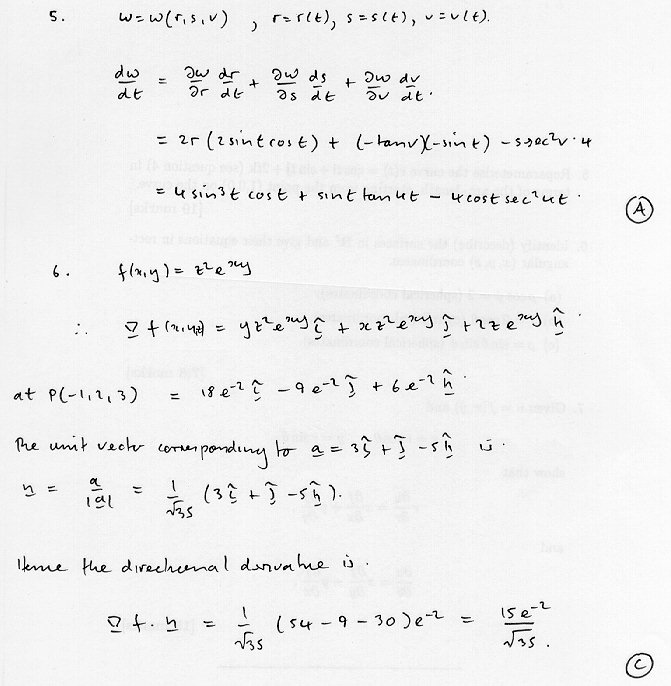 5. w = w(r,s,v) , r = r(t), s = s(t), v = v(t).
dw/dt = ∂w/∂r dr/dt + ∂w/∂s ds/dt + ∂w/∂v dv/dt .
= 2r (2 sint cost) + (-tanv)(-sint) - s sec²v · 4
= 4 sin³t cost + sint tan 4t - 4 cost sec² 4t .
(A)
6. f(x,y) = z²e^xy
∴ ∇f(x,y,z) = yz²e^xy î + xz²e^xy ĵ + 2ze^xy k̂
at P(-1,2,3) = 18e^-2 î - 9e^-2 ĵ + 6e^-2 k̂ .
The unit vector corresponding to a = 3î + ĵ - 5k̂ is .
n = a/|a| = 1/√35 (3î + ĵ - 5k̂ ).
Hence the directional derivative is .
∇f · n = 1/√35 (54 - 9 - 30)e^-2 = 15e^-2/√35 .
(C)